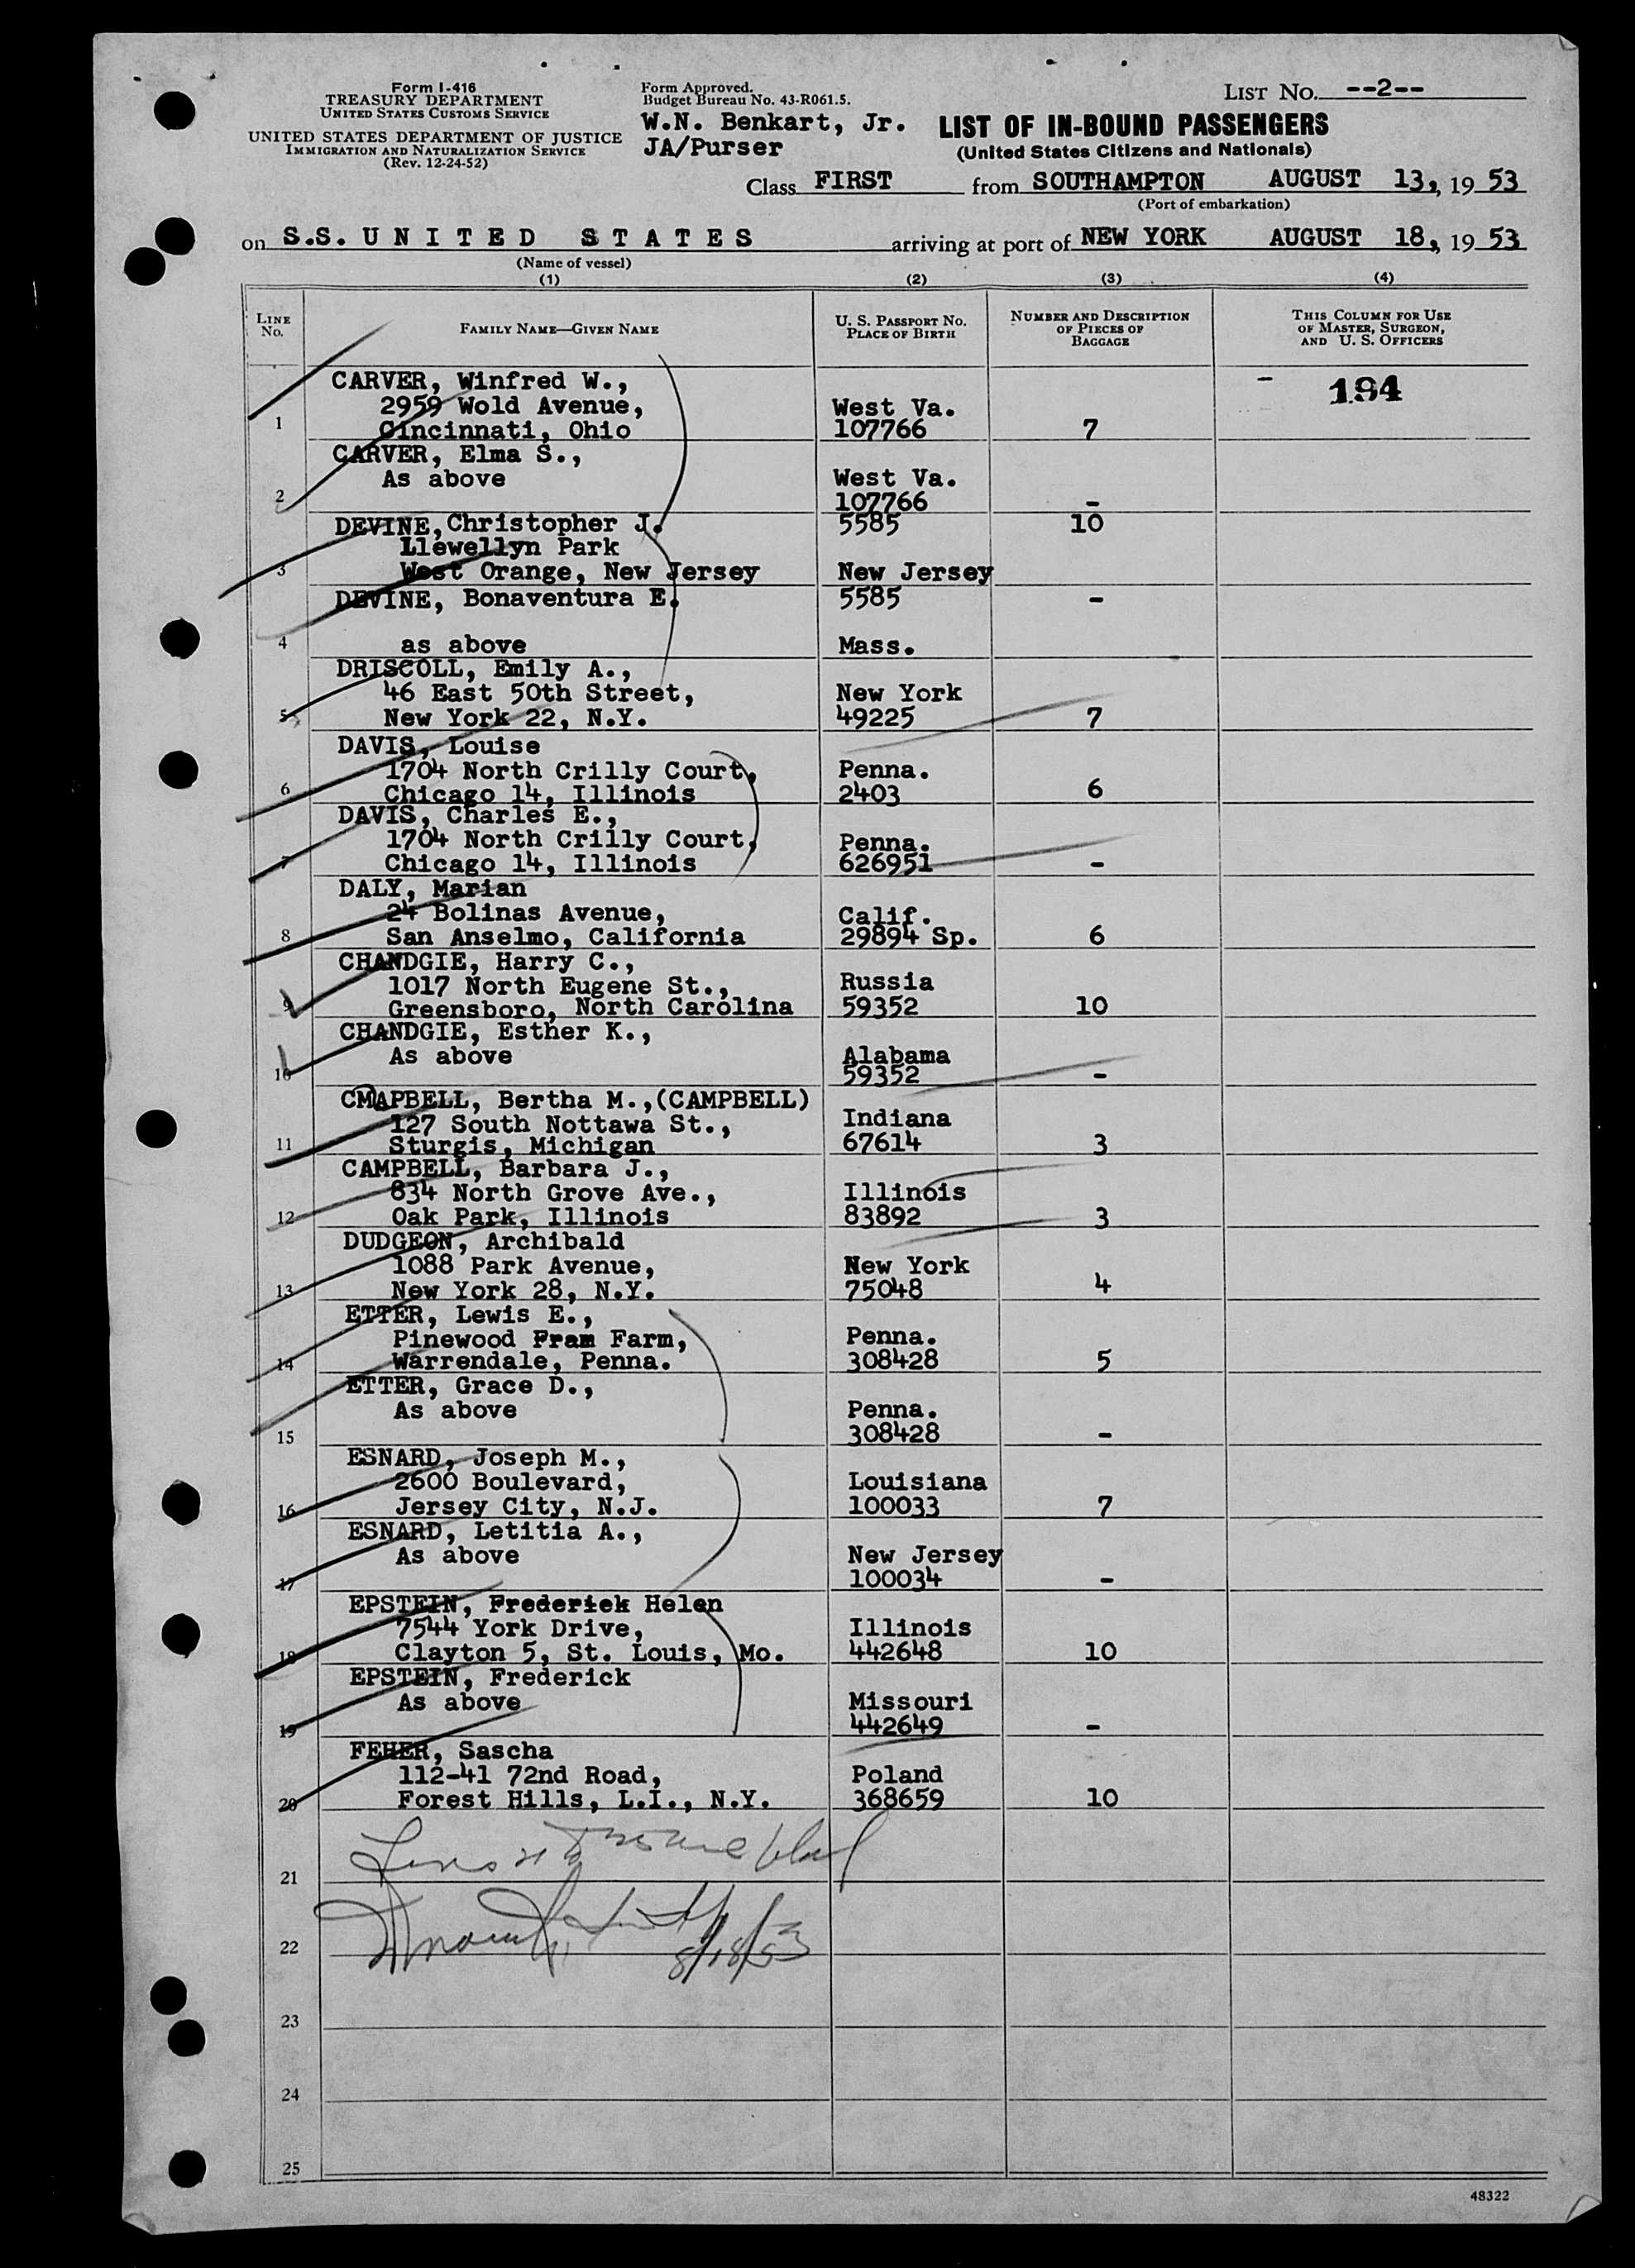 Form I-416
TREASURY DEPARTMENT
UNITED STATES CUSTOMS SERVICE
UNITED STATES DEPARTMENT OF JUSTICE
IMMIGRATION AND NATURALIZATION SERVICE
(Rev. 12-24-52)
Form Approved.
Budget Bureau No. 43-R061.5.
W.N. Benkart, Jr.
JA/Purser
LIST NO. --2--
LIST OF IN-BOUND PASSENGERS
(United States Citizens and Nationals)
Class FIRST from SOUTHAMPTON AUGUST 13, 19 53
(Port of embarkation)
on S.S. UNITED STATES arriving at port of NEW YORK AUGUST 18, 19 53
(Name of vessel)
(1) (2) (3) (4)
LINE No.
FAMILY NAME—GIVEN NAME
U. S. PASSPORT NO.
PLACE OF BIRTH
NUMBER AND DESCRIPTION
OF PIECES OF
BAGGAGE
THIS COLUMN FOR USE
OF MASTER, SURGEON,
AND U. S. OFFICERS
CARVER, Winfred W., - 194
2959 Wold Avenue, West Va.
1 Cincinnati, Ohio 107766 7
CARVER, Elma S.,
As above West Va.
2 107766 -
DEVINE, Christopher J. 5585 10
Llewellyn Park
3 West Orange, New Jersey New Jersey
DEVINE, Bonaventura E. 5585 -
4 as above Mass.
DRISCOLL, Emily A.,
46 East 50th Street, New York
5 New York 22, N.Y. 49225 7
DAVIS, Louise
1704 North Crilly Court, Penna.
6 Chicago 14, Illinois 2403 6
DAVIS, Charles E.,
1704 North Crilly Court, Penna.
7 Chicago 14, Illinois 626951 -
DALY, Marian
24 Bolinas Avenue, Calif.
8 San Anselmo, California 29894 Sp. 6
CHANDGIE, Harry C.,
1017 North Eugene St., Russia
9 Greensboro, North Carolina 59352 10
CHANDGIE, Esther K.,
As above Alabama
10 59352 -
CMAPBELL, Bertha M.,(CAMPBELL)
127 South Nottawa St., Indiana
11 Sturgis, Michigan 67614 3
CAMPBELL, Barbara J.,
834 North Grove Ave., Illinois
12 Oak Park, Illinois 83892 3
DUDGEON, Archibald
1088 Park Avenue, New York
13 New York 28, N.Y. 75048 4
ETTER, Lewis E.,
Pinewood Fram Farm, Penna.
14 Warrendale, Penna. 308428 5
ETTER, Grace D.,
As above Penna.
15 308428 -
ESNARD, Joseph M.,
2600 Boulevard, Louisiana
16 Jersey City, N.J. 100033 7
ESNARD, Letitia A.,
As above New Jersey
17 100034 -
EPSTEIN, Frederick Helen
7544 York Drive, Illinois
18 Clayton 5, St. Louis, Mo. 442648 10
EPSTEIN, Frederick
As above Missouri
19 442649 -
FEHER, Sascha
112-41 72nd Road, Poland
20 Forest Hills, L.I., N.Y. 368659 10
21
22 8/18/53
23
24
25
48322